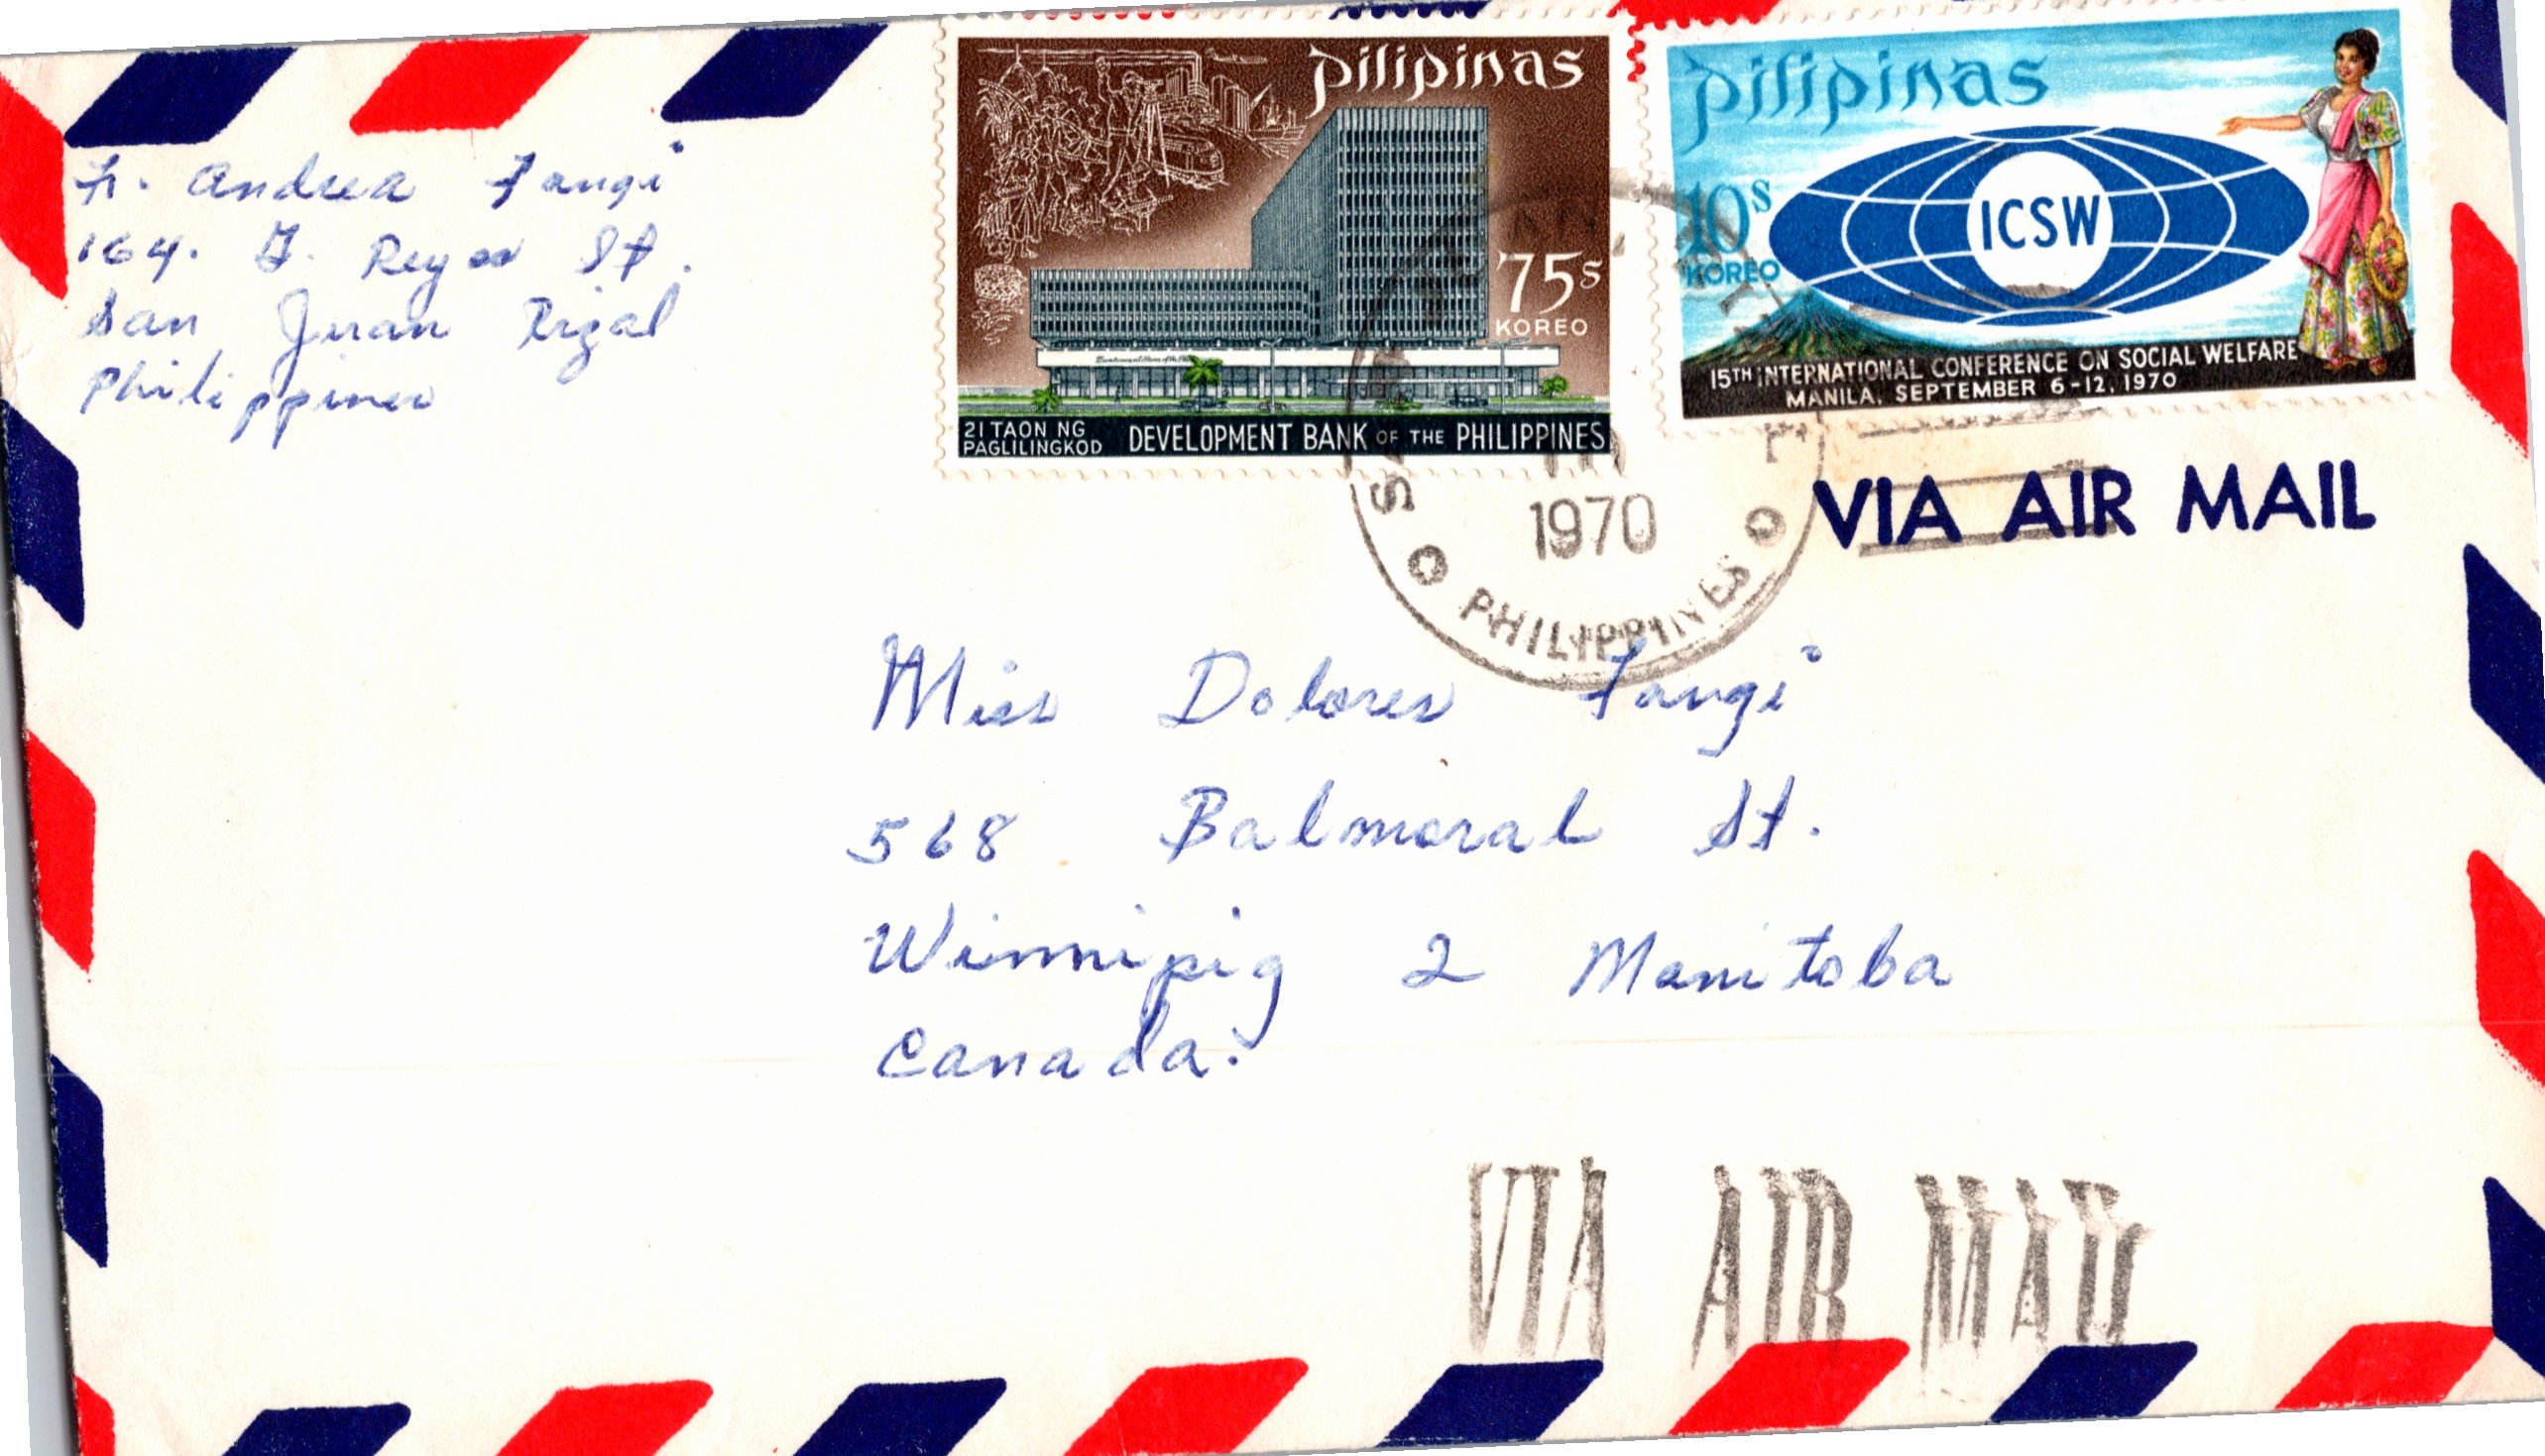 Fr. Andrea Fangi
164. G. Reyes St.
San Juan Rizal
Philippines
pilipinas
75s
KOREO
21 TAON NG
PAGLILINGKOD
DEVELOPMENT BANK OF THE PHILIPPINES
pilipinas
10s
KOREO
ICSW
15TH INTERNATIONAL CONFERENCE ON SOCIAL WELFARE
MANILA, SEPTEMBER 6-12, 1970
1970
PHILIPPINES
VIA AIR MAIL
Miss Dolores Fangi
568 Balmoral St.
Winnipig 2 Manitoba
Canada.
VIA AIR MAIL